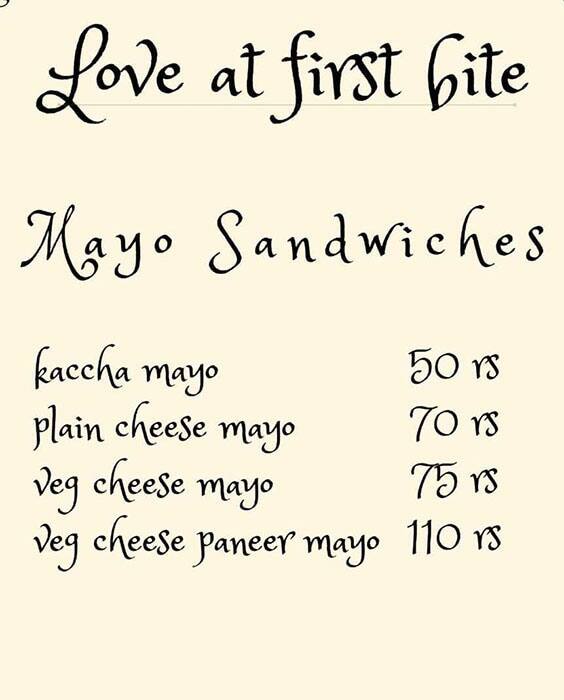 Love at first bite
Mayo Sandwiches
kaccha mayo 50 rs
plain cheese mayo 70 rs
veg cheese mayo 75 rs
veg cheese paneer mayo 110 rs